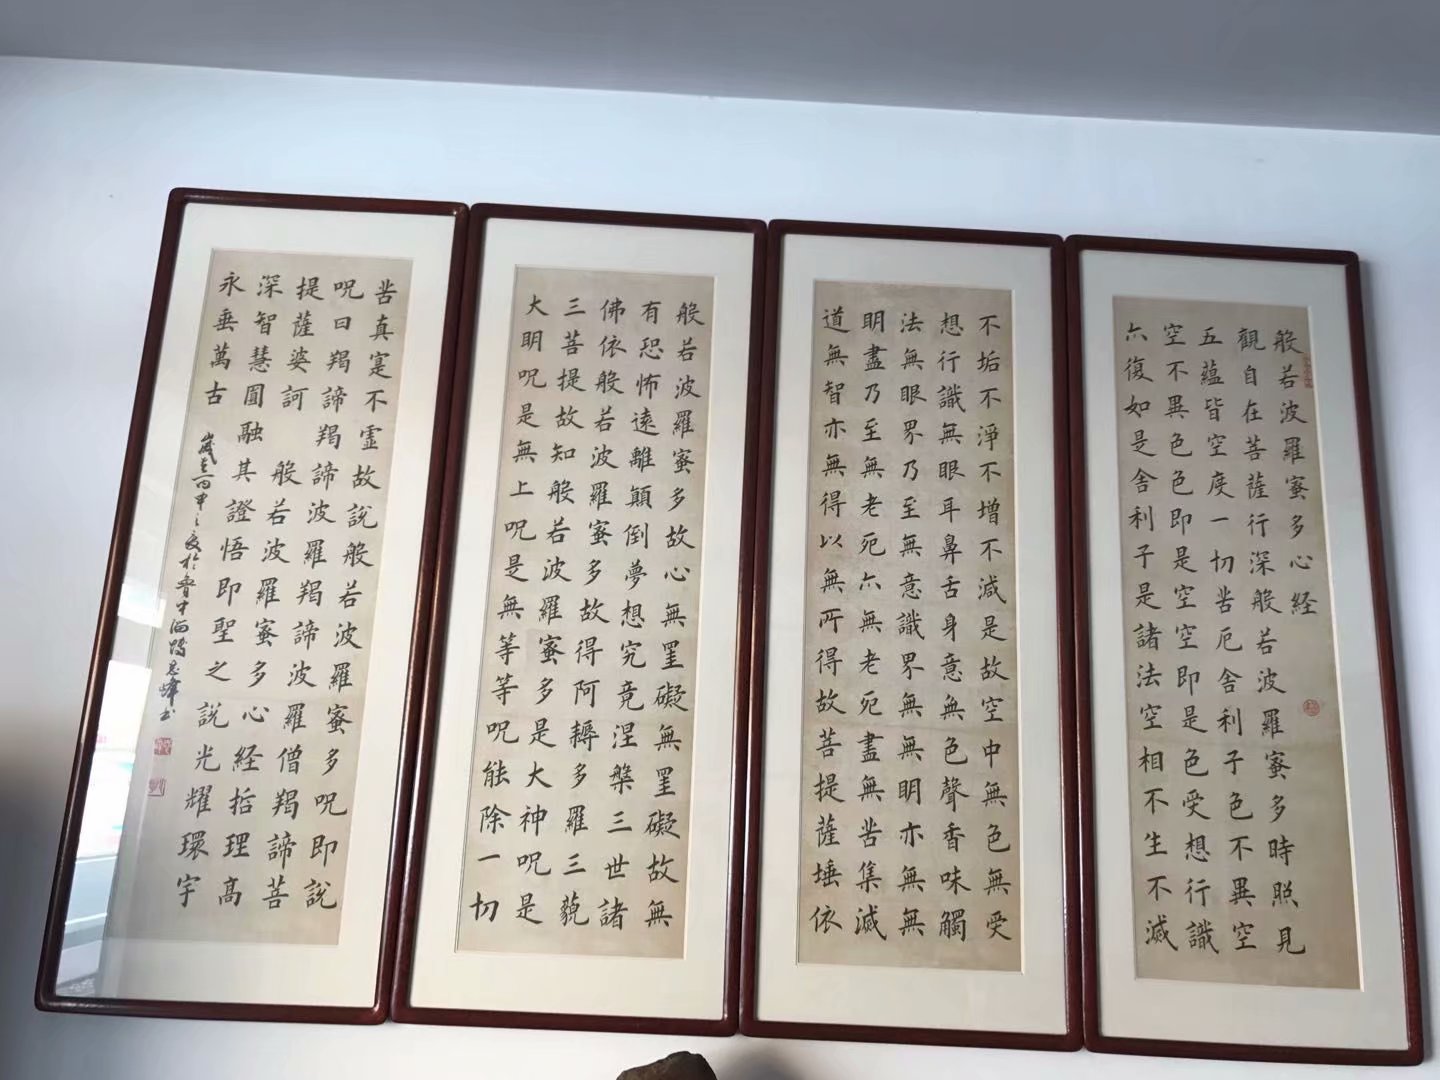 般若波羅蜜多心経
觀自在菩薩行深般若波羅蜜多時照見
五蘊皆空度一切苦厄舍利子色不異空
空不異色色即是空空即是色受想行識
亦復如是舍利子是諸法空相不生不滅
不垢不淨不增不減是故空中無色無受
想行識無眼耳鼻舌身意無色聲香味觸
法無眼界乃至無意識界無無明亦無無
明盡乃至無老死亦無老死盡無苦集滅
道無智亦無得以無所得故菩提薩埵依
般若波羅蜜多故心無罣礙無罣礙故無
有恐怖遠離顛倒夢想究竟涅槃三世諸
佛依般若波羅蜜多故得阿耨多羅三藐
三菩提故知般若波羅蜜多是大神呪是
大明呪是無上呪是無等等呪能除一切
苦真寔不虛故說般若波羅蜜多呪即說
呪曰羯諦羯諦波羅羯諦波羅僧羯諦菩
提薩婆訶 般若波羅蜜多心経哲理高
深智慧圓融其證悟即聖之說光耀環宇
永垂萬古
歲在丙申之夏於魯中